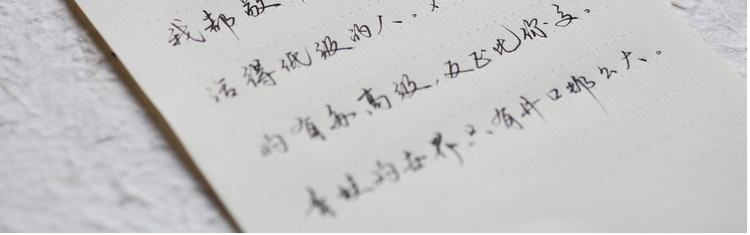 我都敬
活得低级的人。
的有多高级,比你多。
青蛙的世界只有井口那么大。